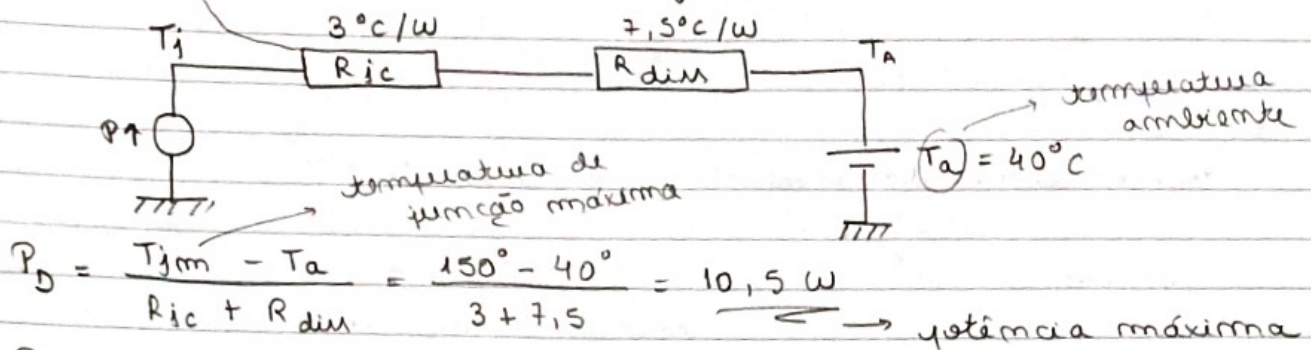 3 °C/W 7,5°C/W
Tj Rjc Rdiss TA
P↑ temperatura ambiente
Ta = 40°C
temperatura de
junção máxima
PD = Tjm - Ta / Rjc + Rdiss = 150° - 40° / 3 + 7,5 = 10,5 W → potência máxima